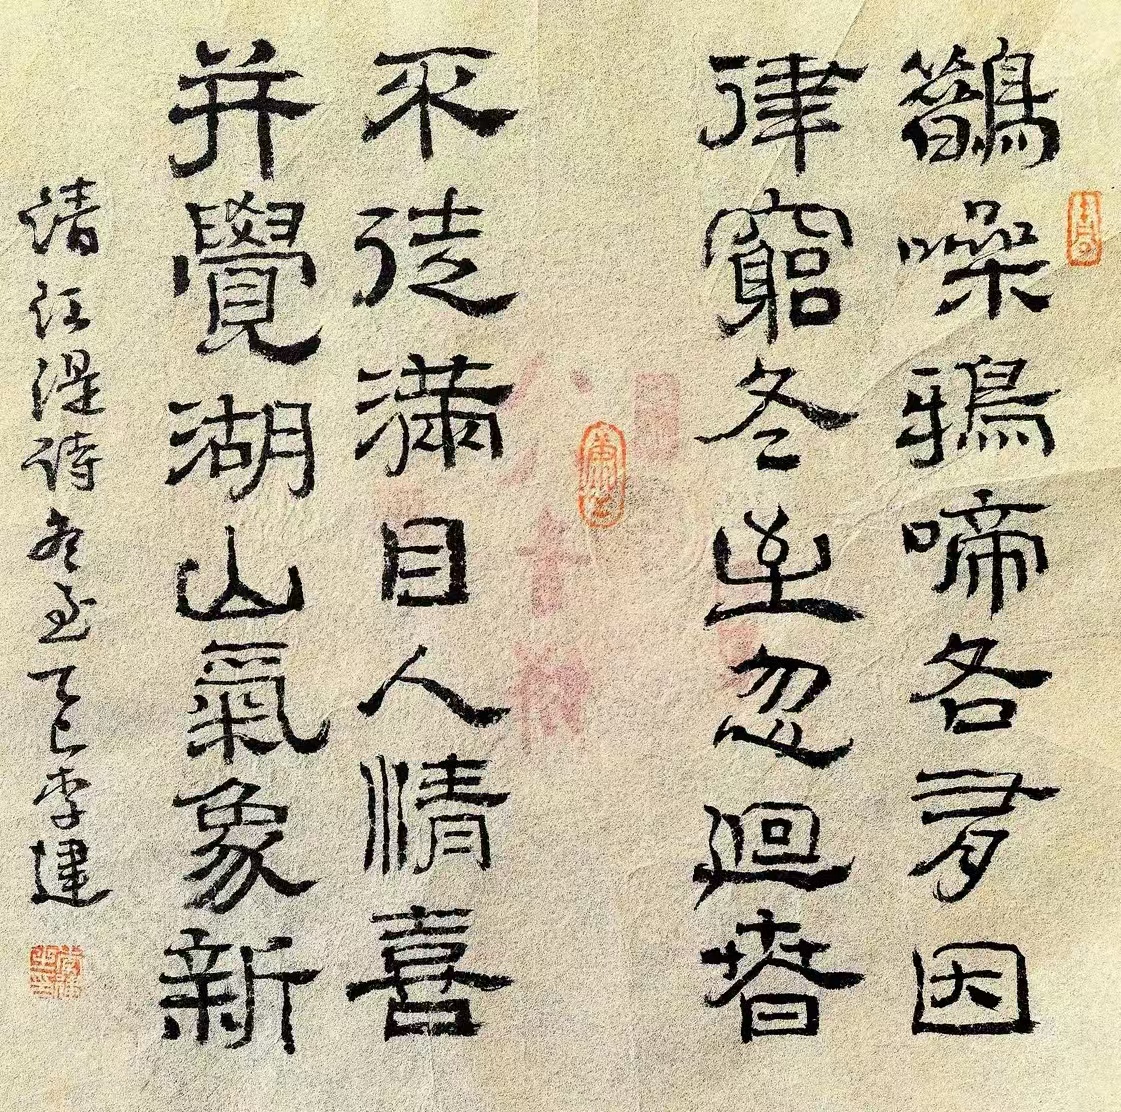 鵲噪鴉啼各有因
律窮冬至忽迴春
不徒滿目人情喜
并覺湖山氣象新
清江湜詩冬至乙巳李建